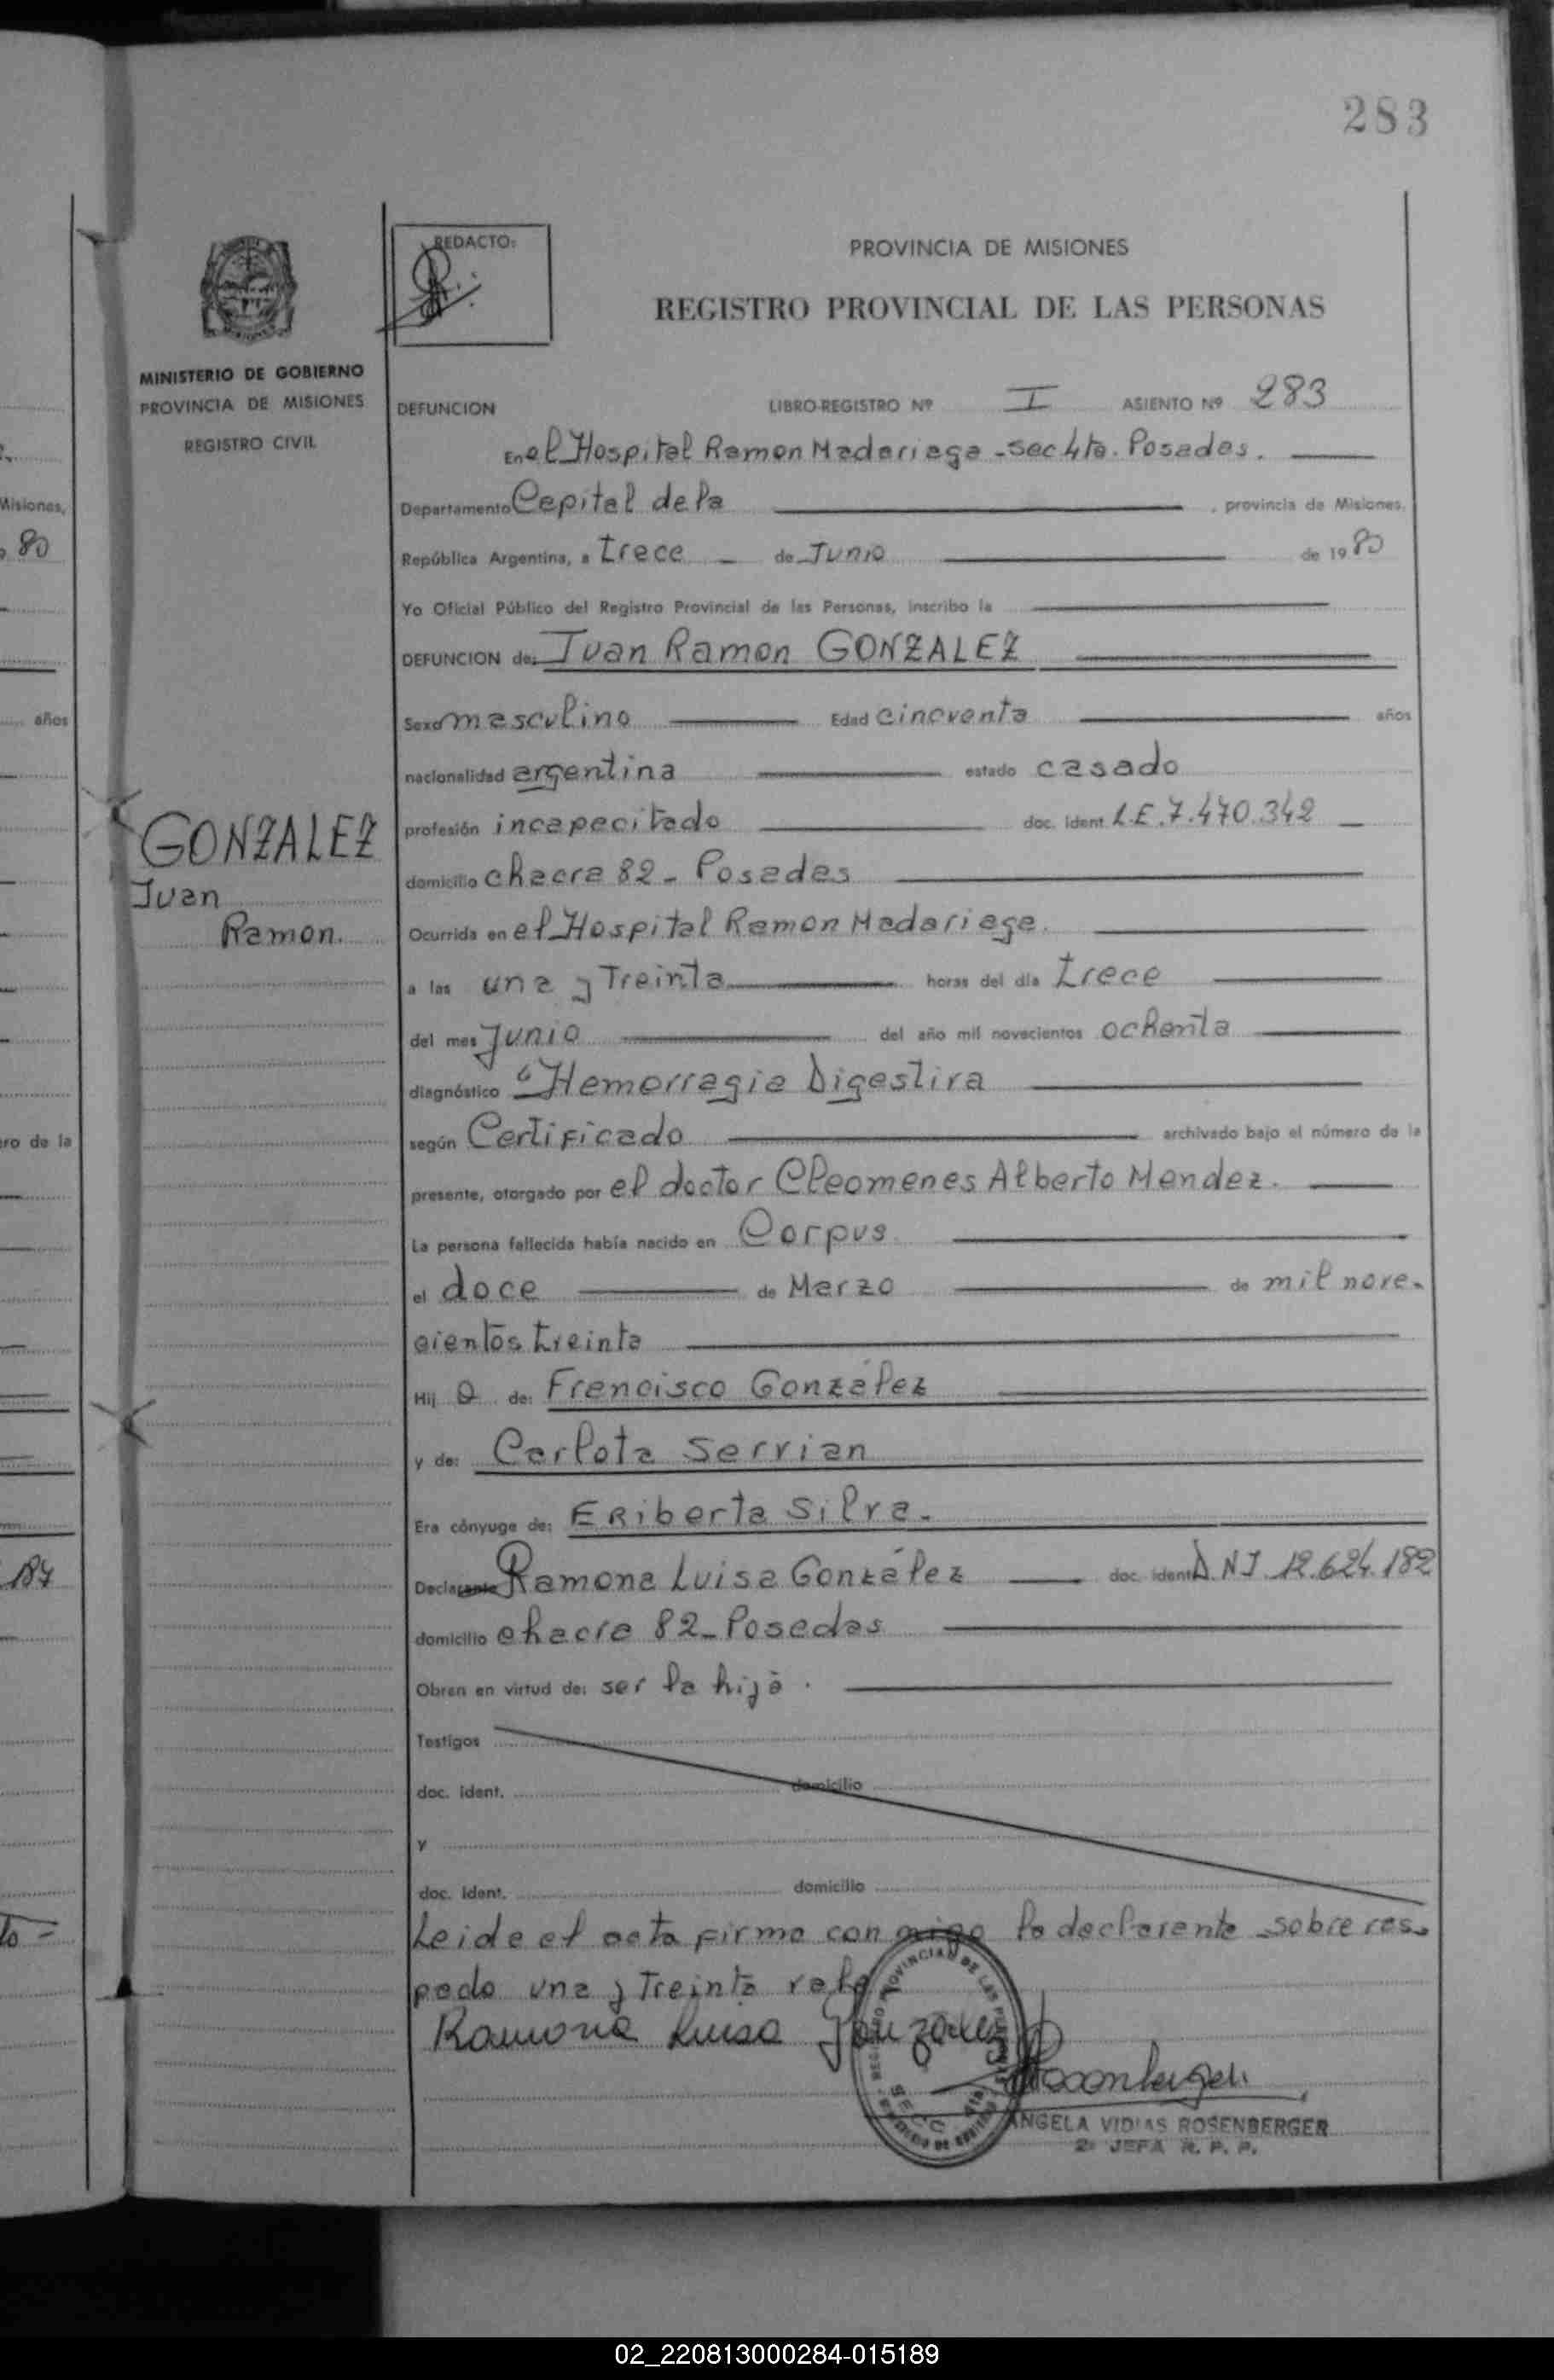 283
PROVINCIA DE MISIONES
REGISTRO PROVINCIAL DE LAS PERSONAS
REDACTO:
MINISTERIO DE GOBIERNO
PROVINCIA DE MISIONES
REGISTRO CIVIL
DEFUNCION LIBRO-REGISTRO Nº I ASIENTO Nº 283
En el Hospital Ramon Madariaga - Sec 4ta. Posadas.
Departamento Capital de la , provincia de Misiones,
República Argentina, a trece de Junio de 1980
Yo Oficial Público del Registro Provincial de las Personas, inscribo la
DEFUNCION de: Juan Ramon GONZALEZ
Sexo masculino Edad cincuenta años
nacionalidad argentina estado casado
profesión incapacitado doc. ident. L.E. 7.470.342
domicilio chacra 82 - Posadas
Ocurrida en el Hospital Ramon Madariaga.
a las una y Treinta horas del día trece
del mes Junio del año mil novecientos ochenta
diagnóstico "Hemorragia Digestiva
según Certificado archivado bajo el número de la
presente, otorgado por el doctor Cleomenes Alberto Mendez.
La persona fallecida había nacido en Corpus
el doce de Marzo de mil nove-
cientos treinta
Hij o de: Francisco González
y de: Carlota Servian
Era cónyuge de: ERiberta Silva.
Declarante Ramona Luisa González doc. ident. D.N.I. 12.624.182
domicilio chacra 82 - Posadas
Obran en virtud de: ser la hija.
Testigos
doc. ident. domicilio
y
doc. ident. domicilio
Leida el acta firma con migo la declarante - sobre ras-
pado una y Treinta vale
Ramona Luisa Gonzalez
Rosenberger
ANGELA VIDIAS ROSENBERGER
2º JEFA R. P. P.
GONZALEZ
Juan
Ramon.
Misiones,
80
años
ro de la
184
02_220813000284-015189